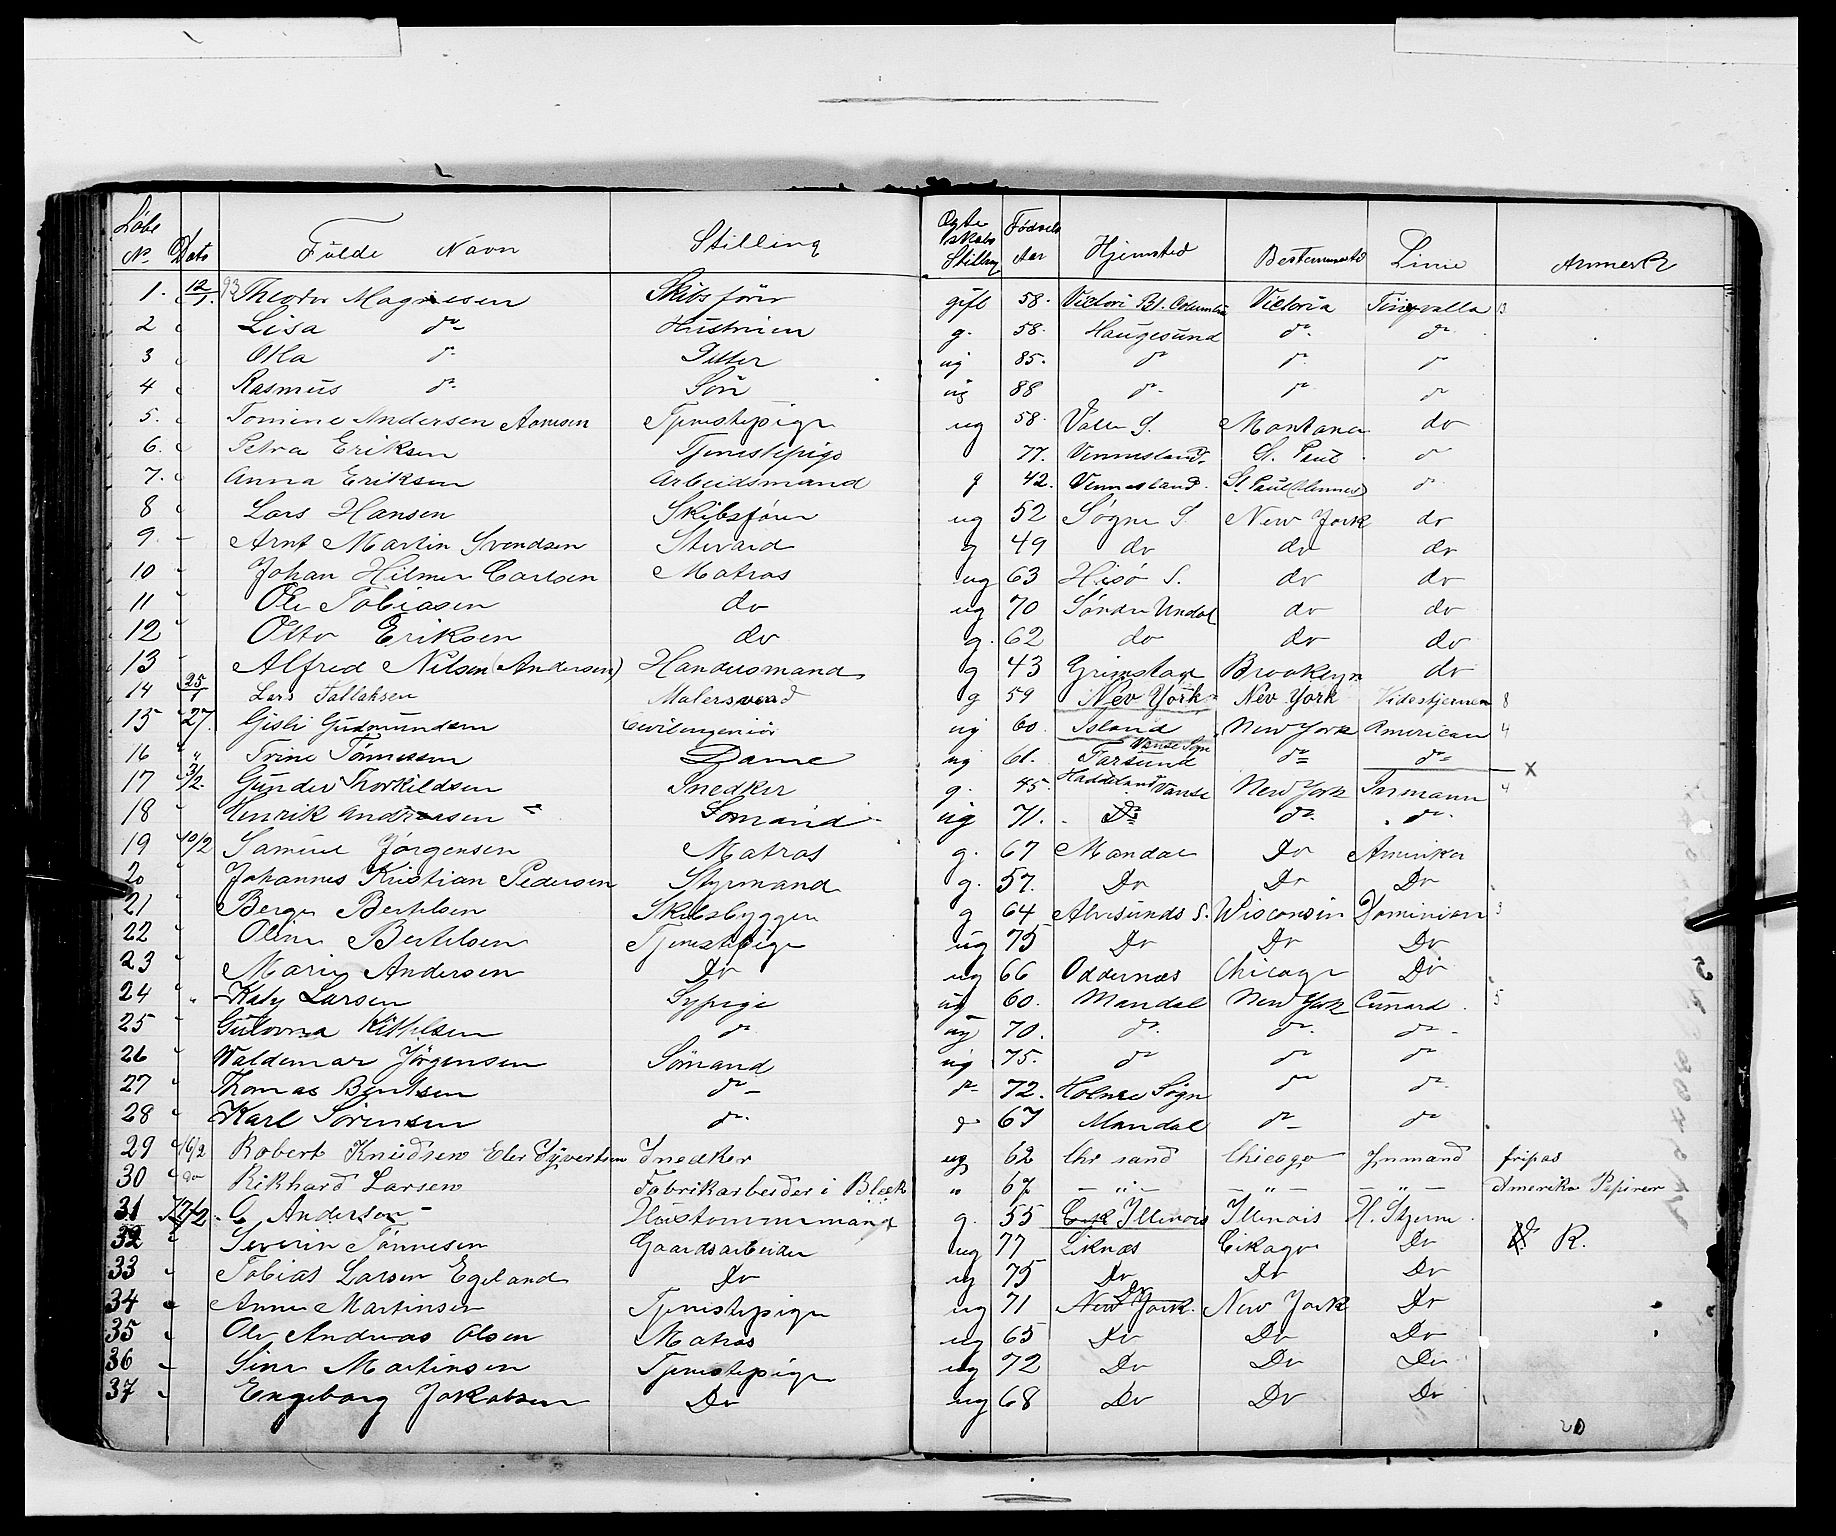 Løbe N. Dato Fulde Navn Stilling Ægteskabs Stilling Fødsels Aar Hjemsted Bestemmelsted Linie Anmerk
1. 12/1 93 Theodor Magnesen Skibsfører gift 58. Victori Bt. Columbia Victoria Tingvalla 13
2 " Lisa do Hustruen g. 58. Haugesund do do
3 " do Datter ug 85. do do do
4 " Rasmus do Søn ug 88 do do do
5. " Tomine Andersen Aanesen Tjenestepige ug 58. Valle S. Montana do
6. " Petra Eriksen Tjenestepige 77. Vennesland. St. Paul do
7. " Anna Eriksen Arbeidsmand g 42. Vennesland. St. Paul (Minnes) do
8 " Lars Hansen Skibsfører ug 52 Søgne S. New York do
9. " Arnt Martin Svendsen Stevard g 49 do do do
10 " Johan Hilmer Carlsen Matros ug 63 Hisø S. do do
11 " Ole Tobiasen do ug 70 Søndre Undal do do
12 Otto Eriksen do g. 62 do do do
13 " Alfred Nilsen (Andersen) Handelsmand g 43 Grimstad Brooklyn do
14 25/1 Lars Tallaksen Malersvend g 59 Nev York Nev York Hvidestjernen 8
15 27. Gisli Gudmundsen Civilingeniør ug 60. Island New York American 4
16 " Trine Tønnessen Dame ug 61. Farsund Vanse Sogn do do x
17 3/2. Gunder Thorkildsen Snedker g. 45. Haddeland Vanse New York Normann 4
18 " Henrik Andreasen " Sømand ug 71. do do do
19 10/2 Samuel Jørgensen Matros g. 67 Mandal Do Amerika
20 " Johannes Kristian Pedersen Styrmand g. 57. Do Do Do
21 " Berge Bertelsen Skibsbygger g 64 Alvesunds S. Wisconsin Dominion 3
22 " Oline Bertelsen Tjenestepige ug 75 Do Do Do
23 " Marie Andersen Do ug 66 Oddernæs Chicago Do
24 " Katy Larsen Sypige ug 60. Mandal New York Cunard. 5
25 " Gulovna Kittelsen do ug 70. do do do
26 " Valdemar Jørgensen Sømand ug 75. do do do
27 " Thomas Bentsen do do 72. Holme Sogn do do
28 " Karl Sørensen do do 67 Mandal do do
29 16/2 Robert Knudsen Eler Syvertsen Snedker ug 62 Chr sand Chicago Inmand fripas
30 do Rikhard Larsen Fabrikarbeider i Blæk " 67 " " " Amerika Papirer
31 17/2 C. Andersen Hustømmermand g. 55 Illinois Illinois H. Stjerne.
32 " Severin Tønnesen Gaardsarbeider ug 77 Liknæs Cikago Do R.
33 " Tobias Larsen Egeland Do ug 75 Do Do Do
34 " Anne Martinsen Tjenestepige ug 71 New York. Do New York Do
35 " Ole Andreas Olsen Matros ug 65 Do Do Do
36 " Sine Martinsen Tjenestepige ug 72 Do Do Do
37 " Engeborg Jakobsen Do ug 68 Do Do Do
20